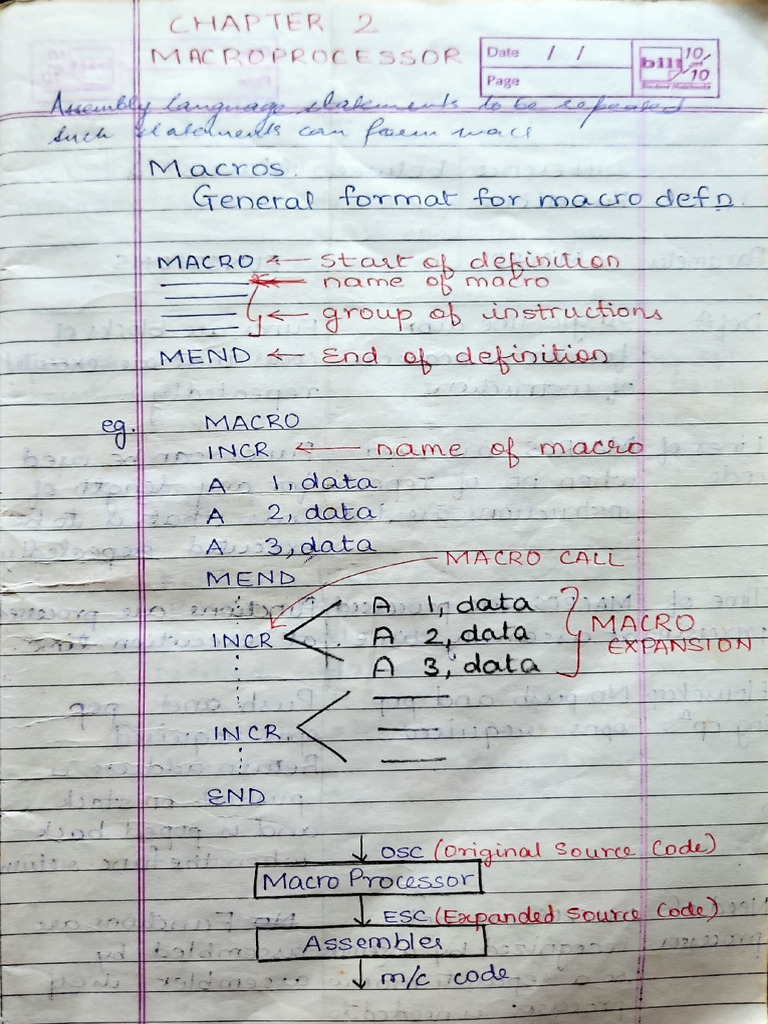 CHAPTER 2
MACROPROCESSOR
Date / /
Page
bill 10 on 10
Assembly language statements to be repeated
such statements can form macr
Macros.
General format for macro defn.
MACRO ← Start of definition
← name of macro
← group of instructions
MEND ← End of definition
eg. MACRO
INCR ← name of macro
A 1, data
A 2, data
A 3, data
MACRO CALL
MEND
A 1, data
INCR A 2, data MACRO EXPANSION
A 3, data
INCR
END
OSC (Original Source Code)
Macro Processor
ESC (Expanded Source Code)
Assembler
m/c code